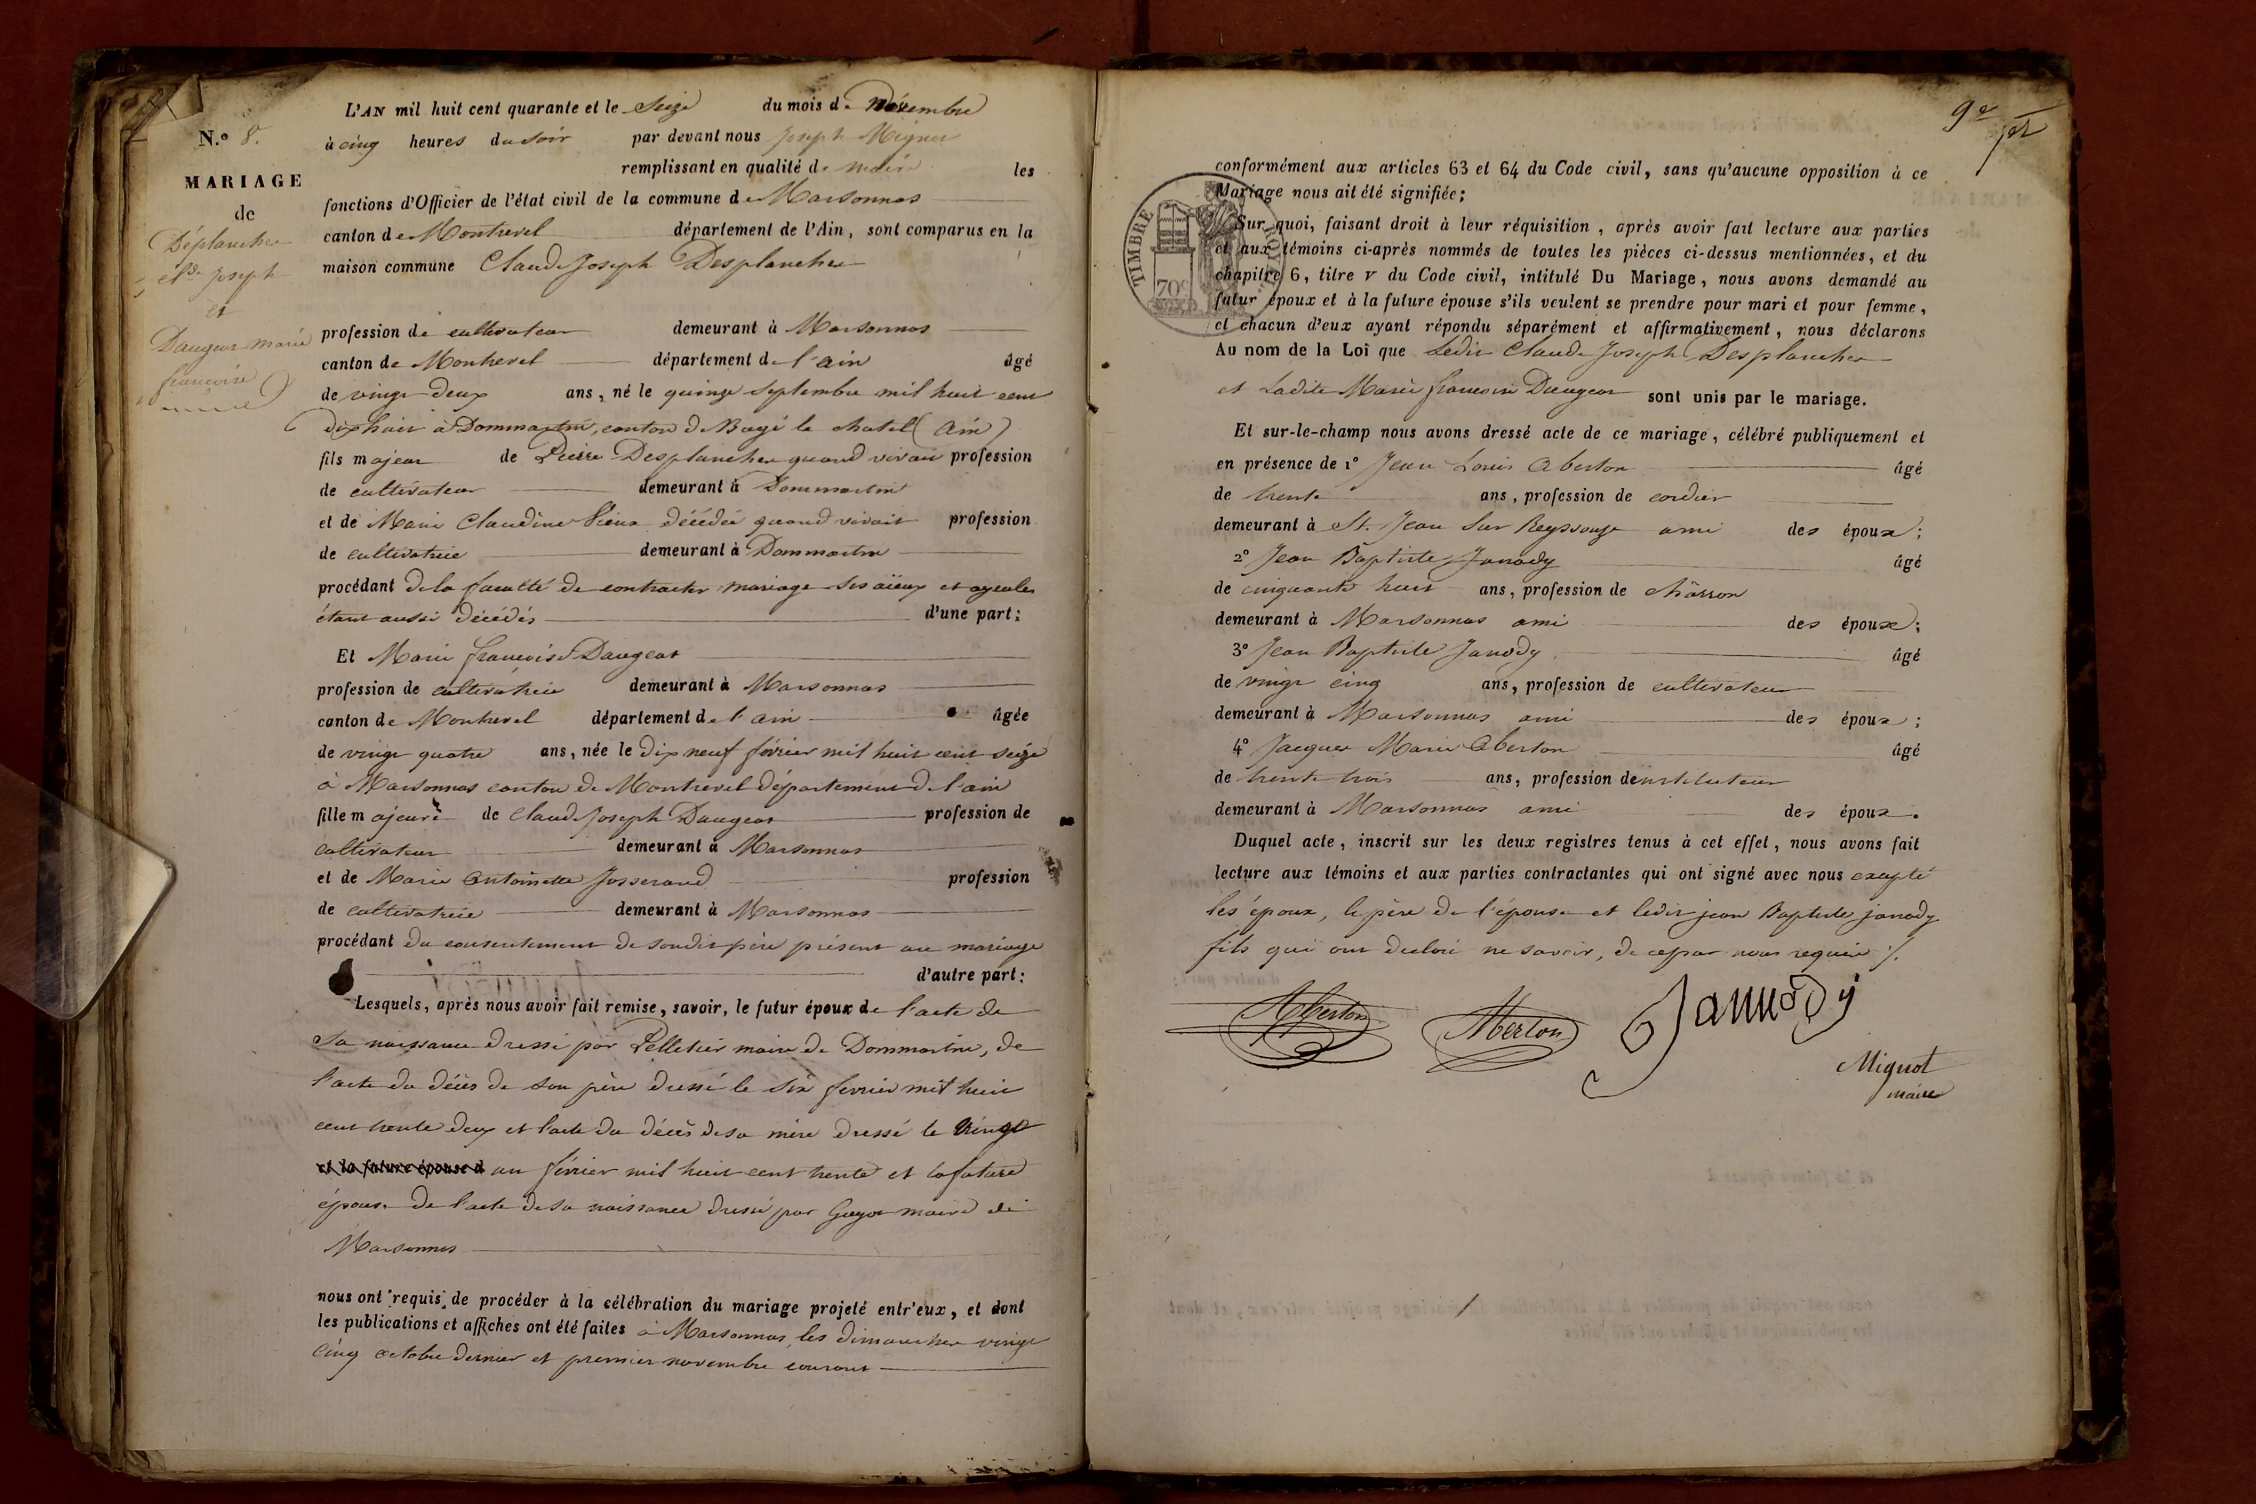 N.° 8.
MARIAGE
de
Desplanches
Cl.de joseph
et
Daugear marie
françoise
L'AN mil huit cent quarante et le Seize du mois de Novembre
à cinq heures du soir par devant nous joseph Mignot
remplissant en qualité de maire les
fonctions d'Officier de l'état civil de la commune de Marsonnas
canton de Montrevel département de l'Ain, sont comparus en la
maison commune Claude Joseph Desplanches
profession de cultivateur demeurant à Marsonnas
canton de Montrevel département de l'ain âgé
de vingt deux ans, né le quinze septembre mil huit cent
dix huit à Dommartin, canton de Bagé le chatel (Ain)
fils majeur de Pierre Desplanches quand vivait profession
de cultivateur demeurant à Dommartin
et de Marie Claudine décédée quand vivait profession
de cultivatrice demeurant à Dommartin
procédant de la faculté de contracter mariage ses aïeux et ayeules
étant aussi décédés d'une part;
Et Marie françoise Daugear
profession de cultivatrice demeurant à Marsonnas
canton de Montrevel département de l'ain âgée
de vingt quatre ans, née le dix neuf février mil huit cent seize
à Marsonnas canton de Montrevel département de l'ain
fille majeure de Claude Joseph Daugear profession de
cultivateur demeurant à Marsonnas
et de Marie Antoinette Josserand profession
de cultivatrice demeurant à Marsonnas
procédant du consentement de soudit père présent au mariage
d'autre part;
Lesquels, après nous avoir fait remise, savoir, le futur époux de l'acte de
sa naissance dressé par Pelletier maire de Dommartin, de
l'acte du décès de son père dressé le six fevrier mil huit
cent trente deux et l'acte du décès de sa mère dressé le vingt
et la future épouse d un février mil huit cent trente et la future
épouse de l'acte de sa naissance dressé par Guyot maire de
Marsonnas
nous ont requis de procéder à la célébration du mariage projeté entr'eux, et dont
les publications et affiches ont été faites à Marsonnas, les dimanches vingt
cinq octobre dernier et premier novembre courant
9e
conformément aux articles 63 et 64 du Code civil, sans qu'aucune opposition à ce
Mariage nous ait été signifiée;
TIMBRE ROYAL
70c
Sur quoi, faisant droit à leur réquisition, après avoir fait lecture aux parties
et aux témoins ci-après nommés de toutes les pièces ci-dessus mentionnées, et du
chapitre 6, titre V du Code civil, intitulé Du Mariage, nous avons demandé au
futur époux et à la future épouse s'ils veulent se prendre pour mari et pour femme,
et chacun d'eux ayant répondu séparément et affirmativement, nous déclarons
Au nom de la Loi que Ledit Claude Joseph Desplanches
et Ladite Marie françoise Daugear sont unis par le mariage.
Et sur-le-champ nous avons dressé acte de ce mariage, célébré publiquement et
en présence de 1° Jean Louis Aberton âgé
de trente ans, profession de cordier
demeurant à St. Jean sur Reyssouze ami des époux;
2° Jean Baptiste Janody âgé
de cinquante huit ans, profession de charron
demeurant à Marsonnas ami des époux;
3° Jean Baptiste Janody âgé
de vingt cinq ans, profession de cultivateur
demeurant à Marsonnas ami des époux;
4° Jacques Marie Aberton âgé
de trente trois ans, profession d'instituteur
demeurant à Marsonnas ami des époux.
Duquel acte, inscrit sur les deux registres tenus à cet effet, nous avons fait
lecture aux témoins et aux parties contractantes qui ont signé avec nous excepté
les époux, le père de l'épouse et ledit jean Baptiste janody
fils qui ont declaré ne savoir, de ce par nous requis ./.
Aberton Aberton Jannody
Mignot
maire